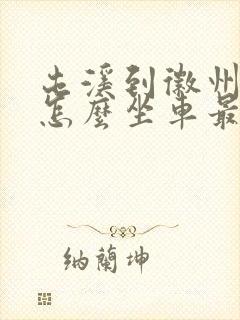 屯溪到徽州
怎麼坐車最
納蘭坤